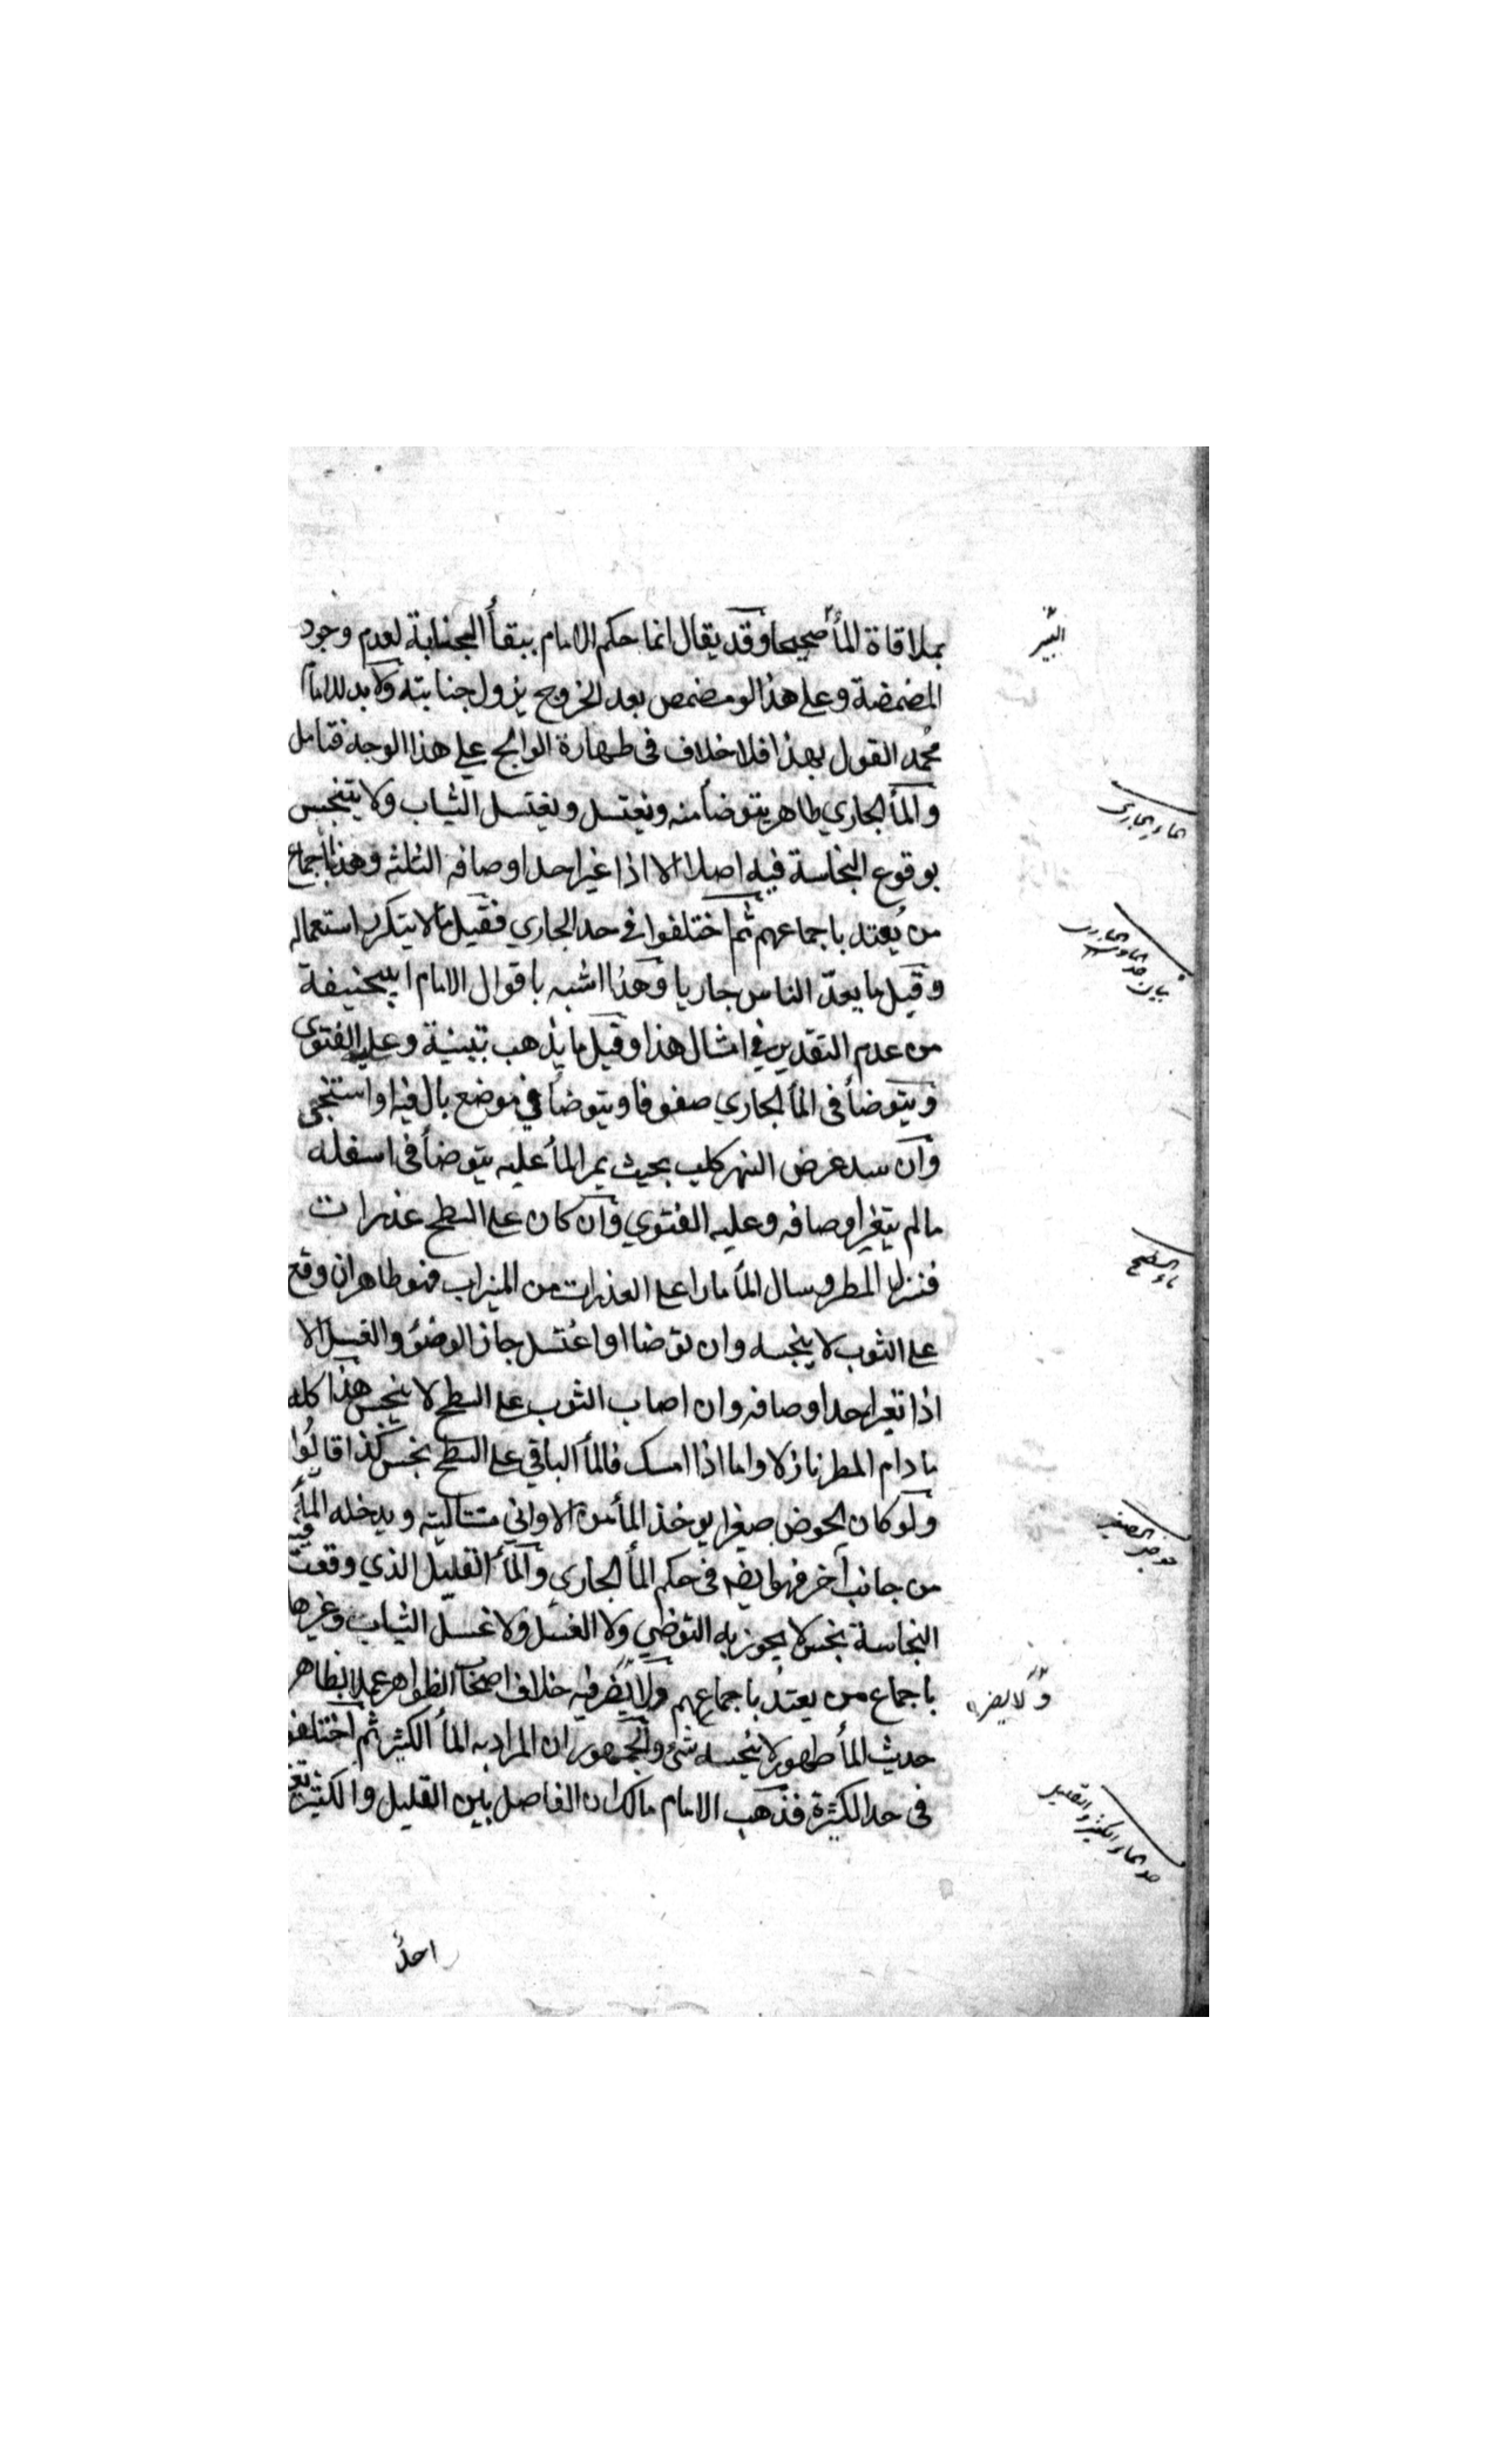 بملاقاة المأ صحيحا وقد يقال انما حكم الامام ببقأ الجنابة لعدم وجود
المضمضة وعلى هذا لو مضمض بعد الخروج يزول جنابته ولا بد للامام
محمد القول بهذا فلا خلاف فى طهارة الوالج على هذا الوجه فتامل
والمأ الجاري طاهر يتوضأ منه ويغتسل ويغتسل الثياب ولا يتنجس
بوقوع النجاسة فيه اصلا الا اذا غير احد اوصافه الثلثه وهذا باجماع
من يُعتد باجماعهم ثم اختلفوا في حد الجاري فقيل ما لا يتكرر استعماله
وقيل ما يعدّ الناس جاريا وهذا اشبه باقوال الامام ابيحنيفة
من عدم التقدير في امثال هذا وقيل ما يذهب بتبنية وعليه الفتوى
ويتوضأ فى المأ الجاري صفوفا ويتوضأ في موضع بال فيه او استنجى
وان سد عرض النهر كلب بحيث يمر المأ عليه يتوضأ فى اسفله
ما لم يتغير اوصافه وعليه الفتوي وان كان على السطح عذرات
فنزل المطر وسال المأ مارا على العذرات من الميزاب فهو طاهر ان وقع
على الثوب لا ينجسه وان توضا او اغتسل جاز الوضؤ والغسل الا
اذا تغير احد اوصافه وان اصاب الثوب على السطح لا ينجس هذا كله
ما دام المطر نازلا واما اذا امسك فالمأ الباقي على السطح نجس كذا قالوا
ولو كان الحوض صغيرا يوخذ المأ من الاواني متتالية ويدخله المأ
من جانب آخر فهو ايضه فى حكم المأ الجاري والمأ القليل الذي وقعت فيه
النجاسة نجس لا يجوز به التوضي ولا الغسل ولا غسل الثياب وغيرها
باجماع من يعتد باجماعهم ولا يضر فيه خلاف اصحاب الظواهر عملا بظاهر
حديث المأ طهور لا ينجسه شئ والجمهور ان المراد به المأ الكثير ثم اختلفوا
فى حد الكثرة فذهب الامام مالك ان الفاصل بين القليل والكثير تغير
احدُ
الماء الجارى
بيان حد الماء الجارى
ماء السطح
حوض الصغير
ولا يضر
حد الماء الكثير والقليل